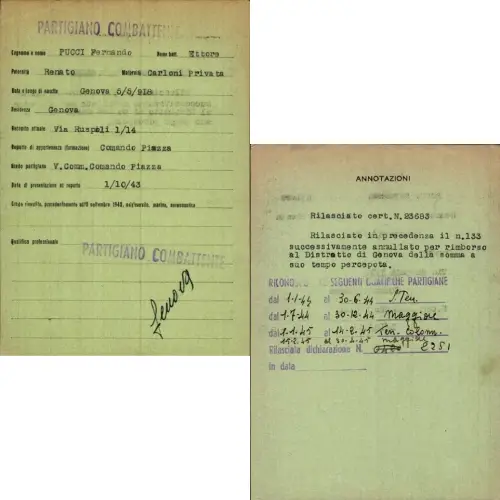 PARTIGIANO COMBATTENTE
Cognome e nome PUCCI Fernando Nome batt. Ettore
Paternità Renato Maternità Carloni Privata
Data e luogo di nascita Genova 5/5/918
Residenza Genova
Recapito attuale Via Ruspoli 1/14
Reparto di appartenenza (formazione) Comando Piazza
Grado partigiano V.Comm.Comando Piazza
Data di presentazione al reparto 1/10/43
Grado rivestito, precedentemente all'8 settembre 1943, nell'esercito, marina, aeronautica
Qualifica professionale
PARTIGIANO COMBATTENTE
Genova
ANNOTAZIONI
Rilasciato cert.N.23683
Rilasciato in precedenza il n.133
successivamente annullato per rimborso
al Distretto di Genova della somma a
suo tempo percepota.
RICONOSC SEGUENTI QUALIFICHE PARTIGIANE
dal 1-1-44 al 30-6-44 S.Ten.
dal 1-7-44 al 30-12-44 Maggiore
dal 1.1.45 al 14-2-45 Ten. Colonn.
15.2.45 al 30-4-45 maggiore
Rilasciata dichiarazione N. 8251
in data